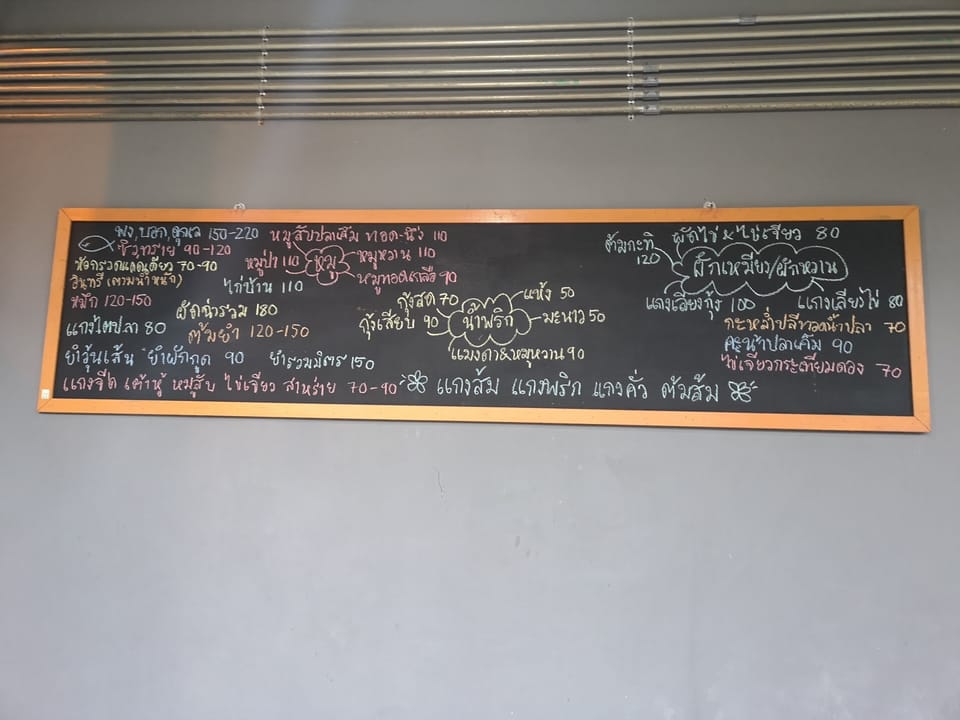 พง,บอก,ดุกเล 150-220
ซิว,ทราย 90-120
ห้อกรวดแดดเดียว 70-90
อินทรี (ตามน้ำหนัก)
หมึก 120-150
หมูสับปลาเค็ม ทอด-นึ่ง 110
หมู
หมูป่า 110
หมูหวาน 110
หมูทอดเกลือ 90
ไก่บ้าน 110
ผัดฉ่ารวม 180
แกงไตปลา 80
ต้มยำ 120-150
ยำวุ้นเส้น ยำผักกูด 90
ยำรวมมิตร 150
แกงจืด เต้าหู้ หมูสับ ไข่เจียว สาหร่าย 70-90
น้ำพริก
กุ้งสด 70
แห้ง 50
กุ้งเสียบ 90
มะนาว 50
แมงดา&หมูหวาน 90
แกงส้ม แกงพริก แกงคั่ว ต้มส้ม
ผัดไข่ & ไข่เจียว 80
ต้มกะทิ 120
ผักเหมียง/ผักหวาน
แกงเลียงกุ้ง 100
แกงเลียงไข่ 80
กะหล่ำปลีทอดน้ำปลา 70
คะน้าปลาเค็ม 90
ไข่เจียวกระเทียมดอง 70